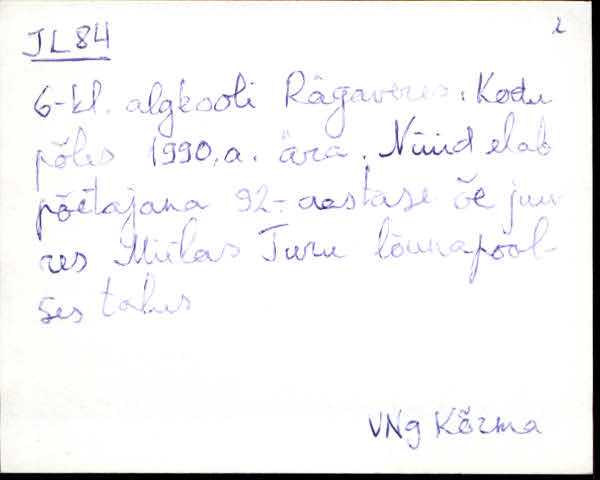 JL84 2
6-kl. algkooli Rägaveres. Kodu
põles 1990.a. ära. Nüüd elab
põetajana 92-aastase õe juu-
res Miilas Turu lõunapool-
ses talus
VNg Kõrma